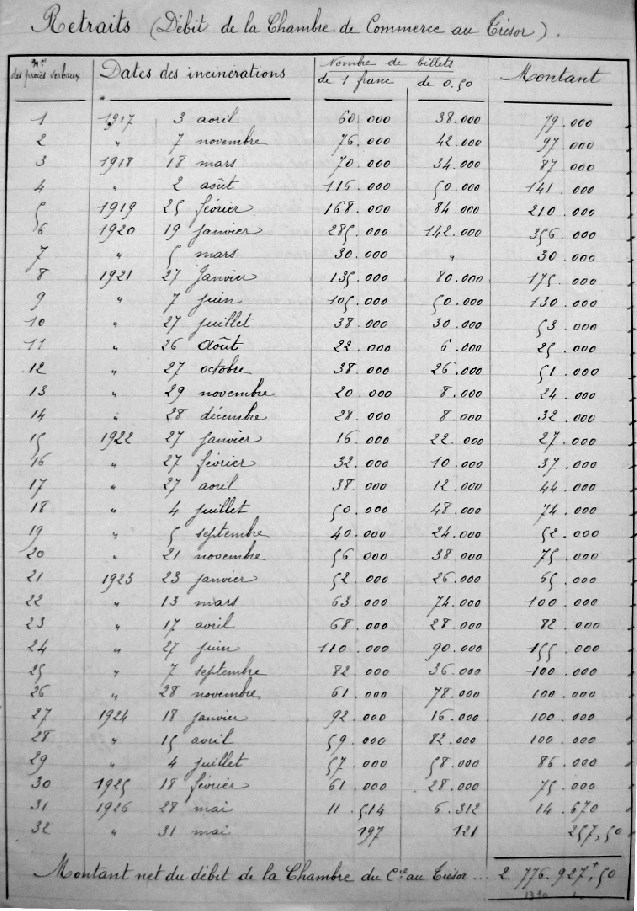 Retraits (Débit de la Chambre de Commerce au Trésor).
Nos des procès verbaux Dates des incinérations Nombre de billets Montant
de 1 franc de 0.50
1 1917 3 avril 60.000 38.000 79.000
2 " 7 novembre 76.000 42.000 97.000
3 1918 18 mars 70.000 34.000 87.000
4 " 2 août 116.000 50.000 141.000
5 1919 25 février 168.000 84.000 210.000
6 1920 19 janvier 285.000 142.000 356.000
7 " 5 mars 30.000 " 30.000
8 1921 27 Janvier 135.000 80.000 175.000
9 " 7 juin 105.000 50.000 130.000
10 " 27 juillet 38.000 30.000 53.000
11 " 26 Août 22.000 6.000 25.000
12 " 27 octobre 38.000 26.000 51.000
13 " 29 novembre 20.000 8.000 24.000
14 " 28 décembre 28.000 8.000 32.000
15 1922 27 janvier 16.000 22.000 27.000
16 " 27 février 32.000 10.000 37.000
17 " 27 avril 38.000 12.000 44.000
18 " 4 juillet 50.000 48.000 74.000
19 " 5 septembre 40.000 24.000 52.000
20 " 21 novembre 56.000 38.000 75.000
21 1923 23 janvier 52.000 26.000 65.000
22 " 13 mars 63.000 74.000 100.000
23 " 17 avril 68.000 28.000 82.000
24 " 27 juin 110.000 90.000 155.000
25 " 7 septembre 82.000 36.000 100.000
26 " 28 novembre 61.000 78.000 100.000
27 1924 18 janvier 92.000 16.000 100.000
28 " 15 avril 59.000 82.000 100.000
29 " 4 juillet 57.000 58.000 86.000
30 1925 18 février 61.000 28.000 75.000
31 1926 28 mai 11.514 6.312 14.670
32 " 31 mai 197 121 257,50
Montant net du débit de la Chambre du Cce au Trésor... 2.776.927f,50